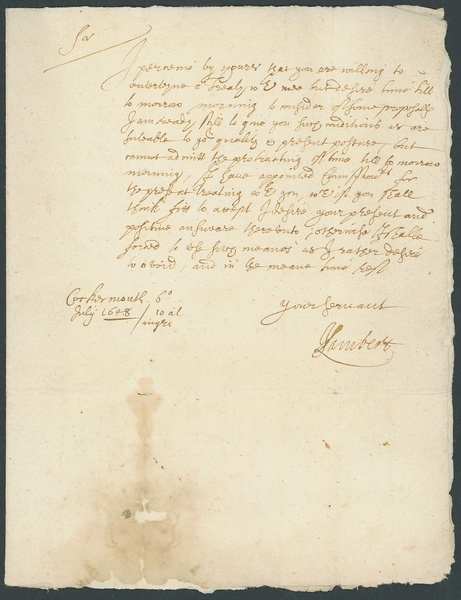 Sr
I perceive by yours that you are willing to
entertayne a Treaty wth mee but desire time till
to morrow morning to consider of some proposalls
I am ready still to give you such conditions as are
suteable to yor quality & present posture, but
cannot admitt the protracting of time till to morrow
morning, I have appointed Comissionrs for
the present treating wth you, wch if you shall
think fitt to accept I desire your present and
positive answare thereunto otherwise I shalbe
forced to use such meanes as I rather desire
to avoid, and in the meane time rest
Cockermouth 6o
July 1648 / 10 at
night
Your servant
JLambert